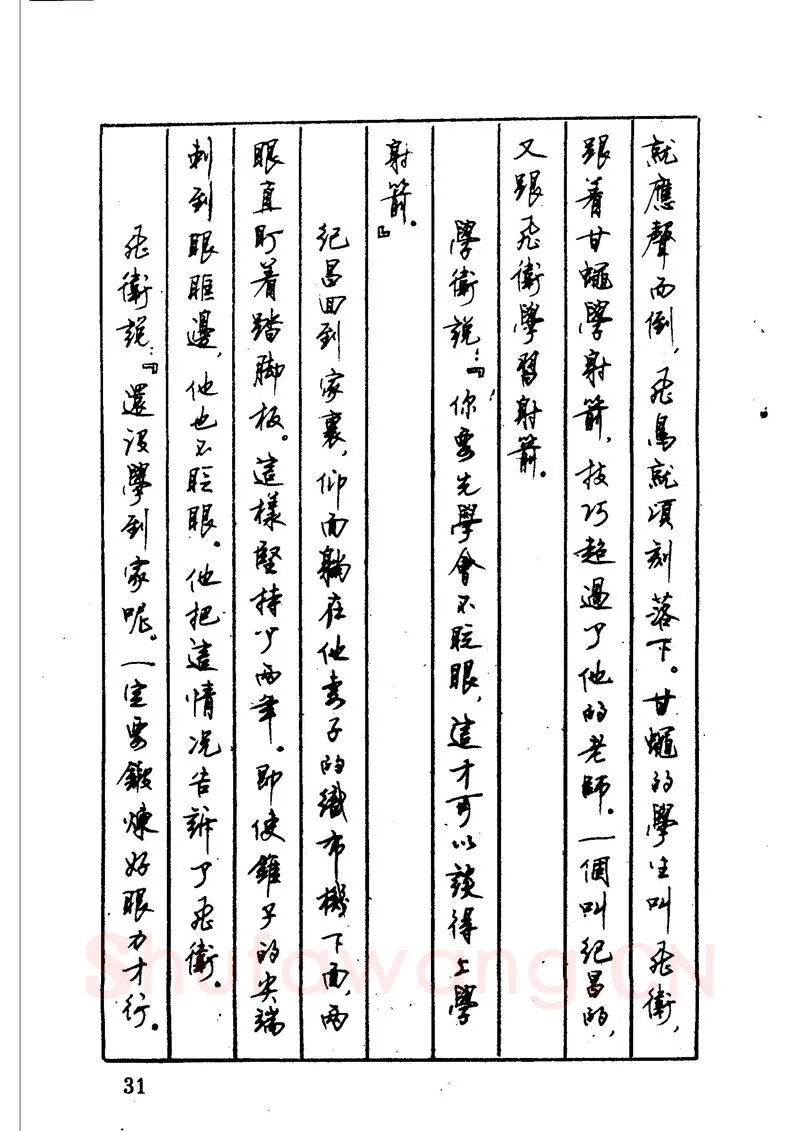 就應聲而倒，飛鳥就頃刻落下。甘蠅的學生叫飛衛，
跟着甘蠅學射箭，技巧超過了他的老師。一個叫紀昌的，
又跟飛衛學習射箭。
學衛說：『你要先學會不眨眼，這才可以談得上學
射箭。』
紀昌回到家裏，仰面躺在他妻子的織布機下面，兩
眼直盯着踏脚板。這樣堅持了兩年。即使錐子的尖端
刺到眼眶邊，他也不眨眼。他把這情况告訴了飛衛。
飛衛說：『還没學到家呢。一定要鍛煉好眼力才行。
31
Shufawang.CN